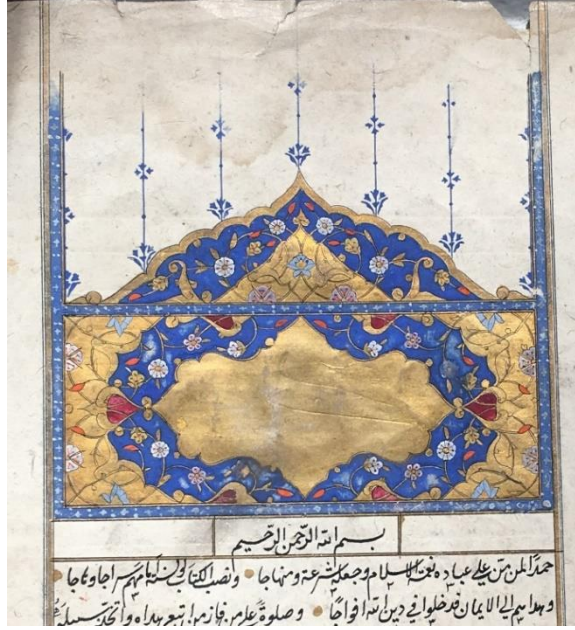 بسم الله الرحمن الرحيم
حمدا لمن من على عباده بنعمة الاسلام وجعله شرعة ومنهاجا ونصب الكتاب سراجا وهاجا
وهداهم الى الايمان فدخلوا في دين الله افواجا وصلوة على من فاز من اتبع بهداه واتخذ سبيله